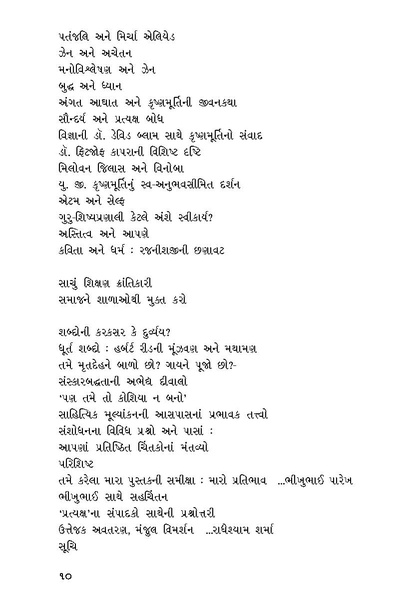 પતંજલિ અને મિર્ચા એલિયેડ
ઝેન અને અચેતન
મનોવિશ્લેષણ અને ઝેન
બુદ્ધ અને ધ્યાન
અંગત આઘાત અને કૃષ્ણમૂર્તિની જીવનકથા
સૌન્દર્ય અને પ્રત્યક્ષ બોધ
વિજ્ઞાની ડૉ. ડેવિડ બ્લામ સાથે કૃષ્ણમૂર્તિનો સંવાદ
ડૉ. ફ્રિટજોફ કાપરાની વિશિષ્ટ દષ્ટિ
મિલોવન જિલાસ અને વિનોબા
યુ. જી. કૃષ્ણમૂર્તિનું સ્વ-અનુભવસીમિત દર્શન
એટમ અને સેલ્ફ
ગુરુ-શિષ્યપ્રણાલી કેટલે અંશે સ્વીકાર્ય?
અસ્તિત્વ અને આપણે
કવિતા અને ધર્મ : રજનીશજીની છણાવટ
સાચું શિક્ષણ ક્રાંતિકારી
સમાજને શાળાઓથી મુક્ત કરો
શબ્દોની કરકસર કે દુર્વ્યય?
ધૂર્ત શબ્દો : હર્બર્ટ રીડની મૂંઝવણ અને મથામણ
તમે મૃતદેહને બાળો છો? ગાયને પૂજો છો?-
સંસ્કારબદ્ધતાની અભેદ્ય દીવાલો
‘પણ તમે તો કોશિયા ન બનો’
સાહિત્યિક મૂલ્યાંકનની આસપાસનાં પ્રભાવક તત્ત્વો
સંશોધનના વિવિધ પ્રશ્નો અને પાસાં :
આપણાં પ્રતિષ્ઠિત ચિંતકોનાં મંતવ્યો
પરિશિષ્ટ
તમે કરેલા મારા પુસ્તકની સમીક્ષા : મારો પ્રતિભાવ ...ભીખુભાઈ પારેખ
ભીખુભાઈ સાથે સહચિંતન
‘પ્રત્યક્ષ’ના સંપાદકો સાથેની પ્રશ્નોત્તરી
ઉત્તેજક અવતરણ, મંજુલ વિમર્શન ...રાધેશ્યામ શર્મા
સૂચિ
૧૦